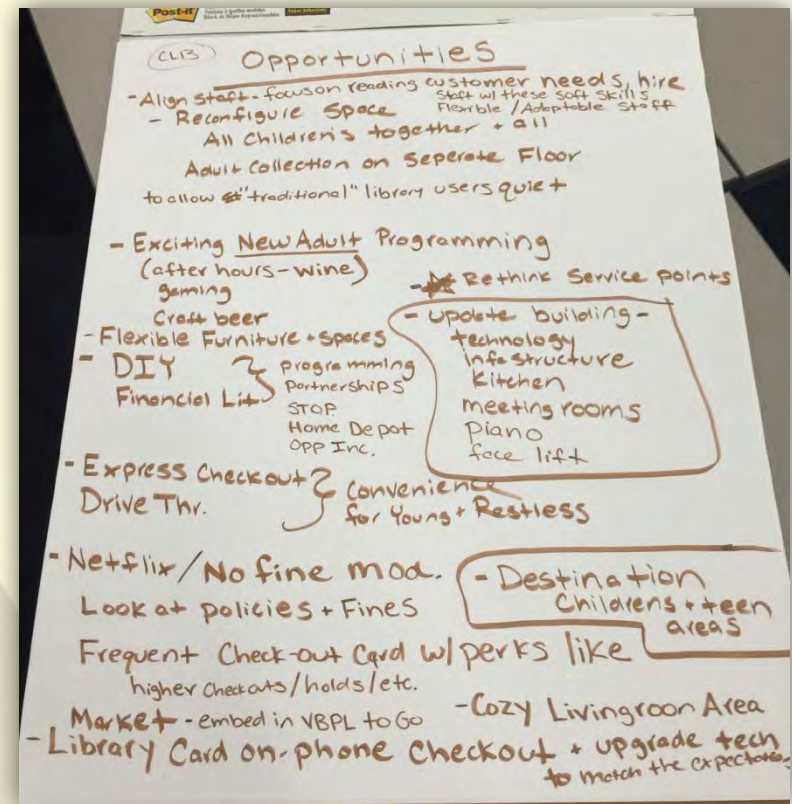 Post-it
CLB
Opportunities
- Align Staff - focus on reading customer needs, hire
staff w/ these soft skills
Flexible / Adaptable Staff
- Reconfigure Space
All Children's together + all
Adult Collection on Seperate Floor
to allow "traditional" library users quiet
- Exciting New Adult Programming
(after hours - wine)
gaming
Craft beer
- Rethink Service points
- Flexible Furniture + spaces
- DIY
Financial Lit
programming
Partnerships
STOP
Home Depot
OPP Inc.
- update building -
technology
infastructure
Kitchen
meeting rooms
Piano
face lift
- Express Checkout
Drive Thr.
Convenience
for Young + Restless
- Netflix/No fine mod.
Look at policies + Fines
- Destination
Childrens + teen
areas
Frequent Check-out Card w/ perks like
higher checkouts/holds/etc.
Market - embed in VBPL to Go
- Cozy Livingroon Area
- Library Card on-phone Checkout + upgrade tech
to match the expectations